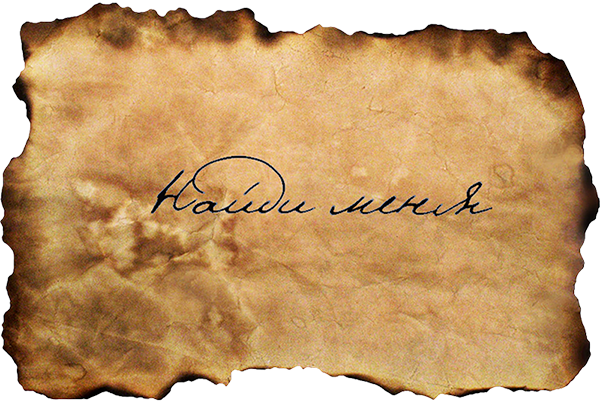 Найди меня